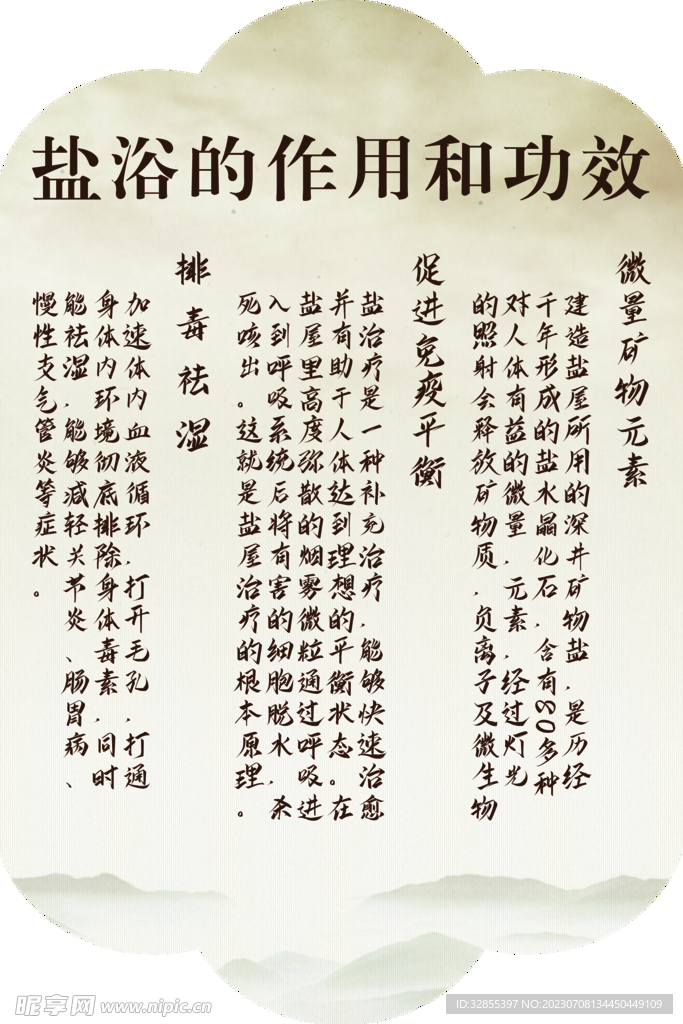 盐浴的作用和功效
微量矿物元素
建造盐屋所用的深井矿物盐,是历经
千年形成的盐水晶化石,含有80多种
对人体有益的微量,元素,经过灯光
的照射会释放矿物质,负离子及微生物
促进免疫平衡
盐治疗是一种补充治疗,能够快速治愈
并有助于人体达到理想的平衡状态。在
盐屋里高度弥散的烟雾微粒通过呼吸进
入到呼吸系统后将有害的细胞脱水,杀
死咳出。这就是盐屋治疗的根本原理。
排毒祛湿
加速体内血液循环,打开毛孔,打通
身体内环境彻底排除身体毒素,同时
能祛湿,能够减轻关节炎、肠胃病、
慢性支气管炎等症状。
昵享网 www.nipic.cn
ID:32855397 NO:20230708134450449109